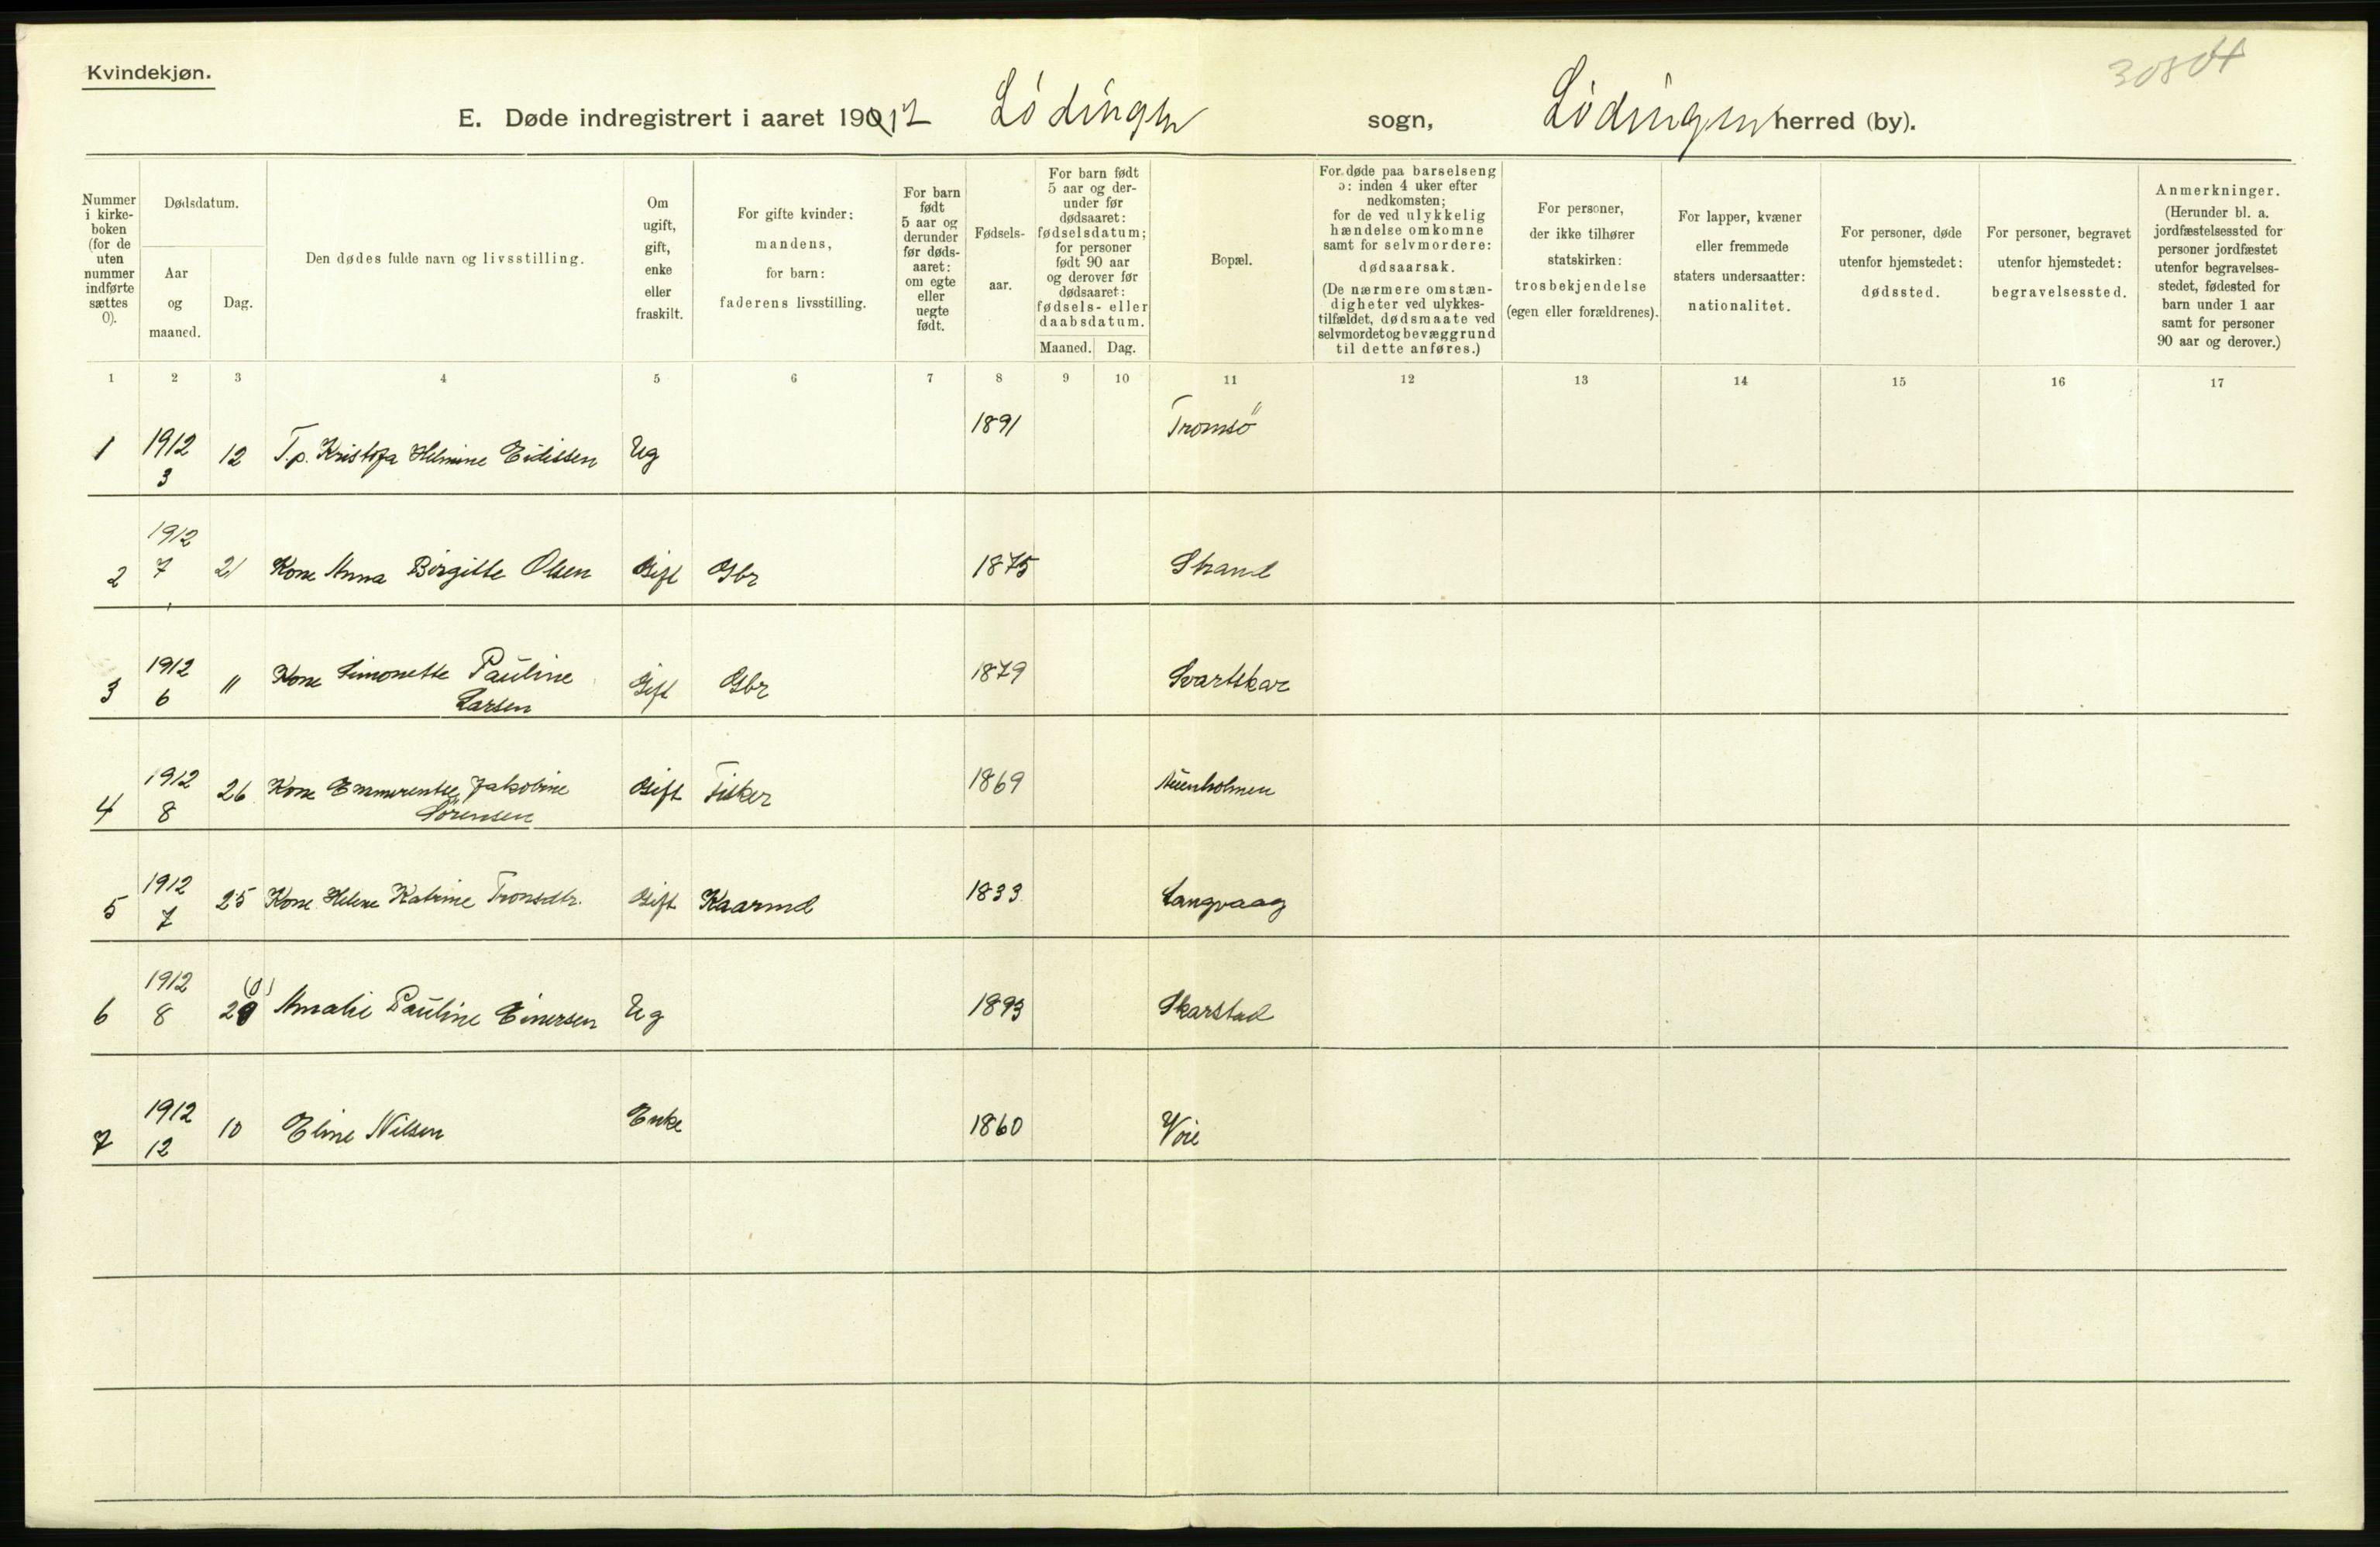 Kvindekjøn.
30804
E. Døde indregistrert i aaret 1912 Lødingen sogn, Lødingen herred (by).
Nummer i kirkeboken (for de uten nummer indførte sættes 0).
Dødsdatum.
Aar og maaned.
Dag.
Den dødes fulde navn og livsstilling.
Om ugift, gift, enke eller fraskilt.
For gifte kvinder: mandens, for barn: faderens livsstilling.
For barn født 5 aar og derunder før dødsaaret: om egte eller uegte født.
Fødselsaar.
For barn født 5 aar og derunder før dødsaaret: fødselsdatum; for personer født 90 aar og derover før dødsaaret: fødsels- eller daabsdatum.
Maaned. Dag.
Bopæl.
For døde paa barselseng ɔ: inden 4 uker efter nedkomsten; for de ved ulykkelig hændelse omkomne samt for selvmordere: dødsaarsak. (De nærmere omstændigheter ved ulykkestilfældet, dødsmaate ved selvmordet og bevæggrund til dette anføres.)
For personer, der ikke tilhører statskirken: trosbekjendelse (egen eller forældrenes).
For lapper, kvæner eller fremmede staters undersaatter: nationalitet.
For personer, døde utenfor hjemstedet: dødssted.
For personer, begravet utenfor hjemstedet: begravelsessted.
Anmerkninger. (Herunder bl. a. jordfæstelsessted for personer jordfæstet utenfor begravelsesstedet, fødested for barn under 1 aar samt for personer 90 aar og derover.)
1 2 3 4 5 6 7 8 9 10 11 12 13 14 15 16 17
1 1912 3 12 T.p. Kristofa Helmine Eidissen Ug 1891 Tromsö
2 1912 7 21 Kone Anna Birgitte Olsen Gift Gbr 1875 Strand
3 1912 6 " Kone Simonette Pauline Larsen Gift Gbr 1879 Svartskar
4 1912 8 26 Kone Emmerentse Jakobine Sörensen Gift Fisker 1869
5 1912 7 25 Kone Helene Katrine Tronsdtr. Gift Kaarmd 1833 Langvaag
6 1912 8 29 (0) Amalie Pauline Einersen Ug 1893 Skarstad
7 1912 12 10 Eline Nilsen Enke 1860 Voie